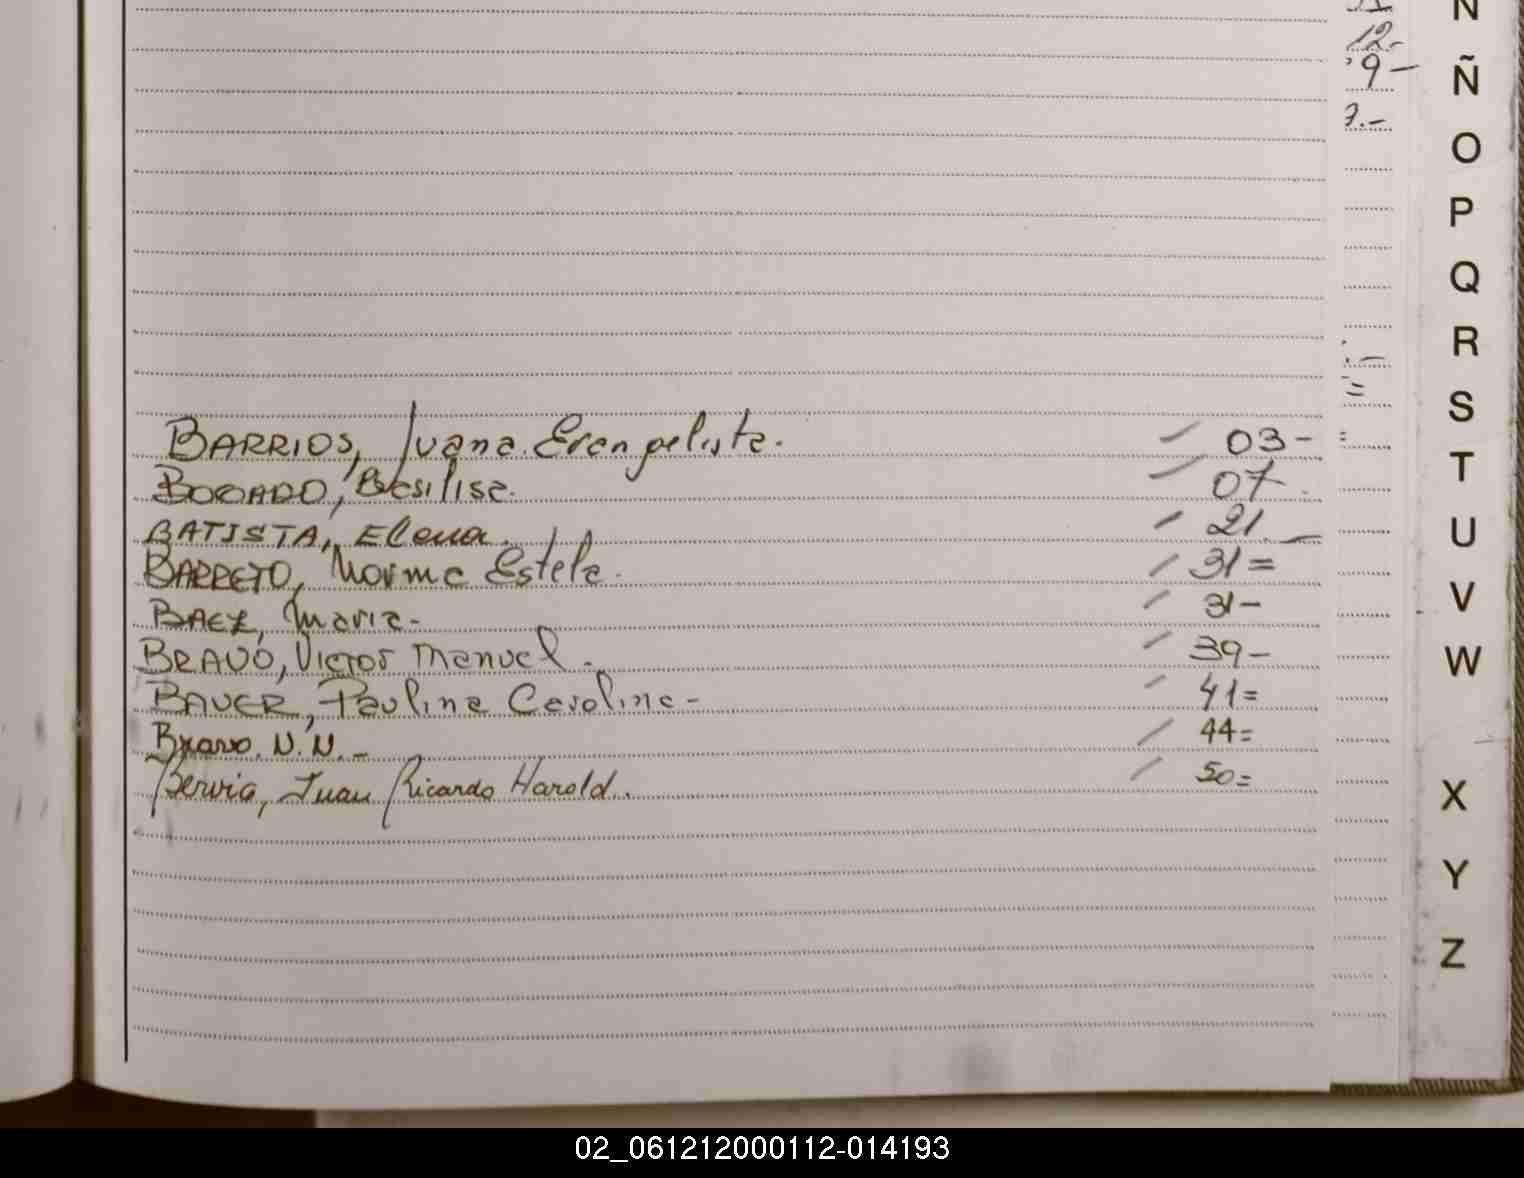 N
12.-
Ñ
9-
7.-
O
P
Q
R
S
BARRIOS, Juana. Evangelista. 03-
T
BOGADO, Basilisa. 07.
BATISTA, Elena. 21.-
U
BARRETO, Norma Estela. 31=
BAEZ, Maria- 31-
V
BRAVO, Victor Manuel. 39-
W
BAUER, Paulina Carolina- 41=
Bravo. N.N.- 44=
Bervia, Juan Ricardo Harold. 50=
X
Y
Z
02_061212000112-014193